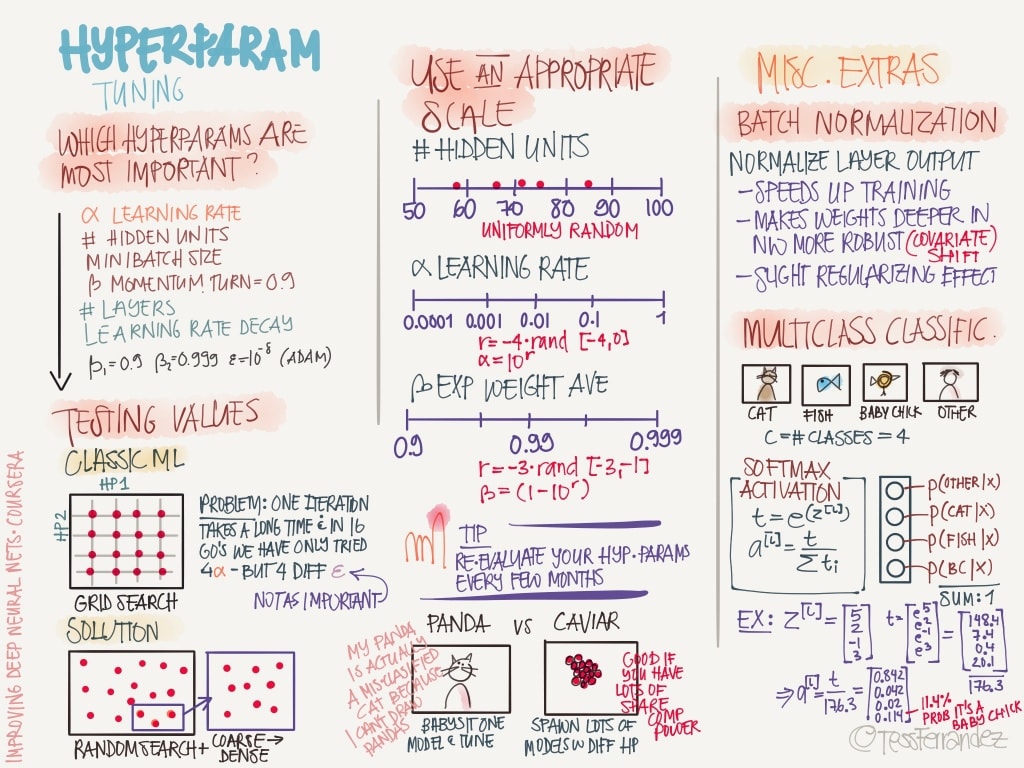 HYPERPARAM
TUNING
WHICH HYPERPARAMS ARE
MOST IMPORTANT?
α LEARNING RATE
# HIDDEN UNITS
MINIBATCH SIZE
β MOMENTUM TURN=0.9
# LAYERS
LEARNING RATE DECAY
β₁=0.9 β₂=0.999 ε=10⁻⁸ (ADAM)
TESTING VALUES
CLASSIC ML
HP1
HP2
GRID SEARCH
PROBLEM: ONE ITERATION
TAKES A LONG TIME & IN 16
GO'S WE HAVE ONLY TRIED
4α - BUT 4 DIFF ε
NOT AS IMPORTANT
SOLUTION
RANDOM SEARCH +
COARSE→
DENSE
IMPROVING DEEP NEURAL NETS · COURSERA
USE AN APPROPRIATE
SCALE
# HIDDEN UNITS
50 60 70 80 90 100
UNIFORMLY RANDOM
α LEARNING RATE
0.0001 0.001 0.01 0.1 1
r=-4·rand [-4,0]
α=10^r
β EXP WEIGHT AVE
0.9 0.99 0.999
r=-3·rand [-3,-1]
β=(1-10^r)
TIP
RE-EVALUATE YOUR HYP. PARAMS
EVERY FEW MONTHS
PANDA VS CAVIAR
MY PANDA
IS ACTUALLY
A MISCLASSIFIED
CAT BECAUSE
I CAN'T DRAW
PANDAS
BABYSIT ONE
MODEL & TUNE
GOOD IF
YOU HAVE
LOTS OF
SHARE
COMP
POWER
SPAWN LOTS OF
MODELS W DIFF HP
MISC. EXTRAS
BATCH NORMALIZATION
NORMALIZE LAYER OUTPUT
- SPEEDS UP TRAINING
- MAKES WEIGHTS DEEPER IN
NW MORE ROBUST (COVARIATE)
SHIFT
- SLIGHT REGULARIZING EFFECT
MULTICLASS CLASSIFIC.
CAT FISH BABY CHICK OTHER
C=# CLASSES = 4
SOFTMAX
ACTIVATION
t=e^(z^[L])
a^[L]=t/Σtᵢ
P(OTHER|X)
P(CAT|X)
P(FISH|X)
P(BC|X)
SUM:1
EX: Z^[L]=[5 2 -1 3] t=[e^5 e^2 e^-1 e^3]=[148.4 7.4 0.4 20.1]
176.3
⇒a^[L]=t/176.3=[0.842 0.042 0.02 0.114]
11.4%
PROB IT'S A
BABY CHICK
©TessFerrandez